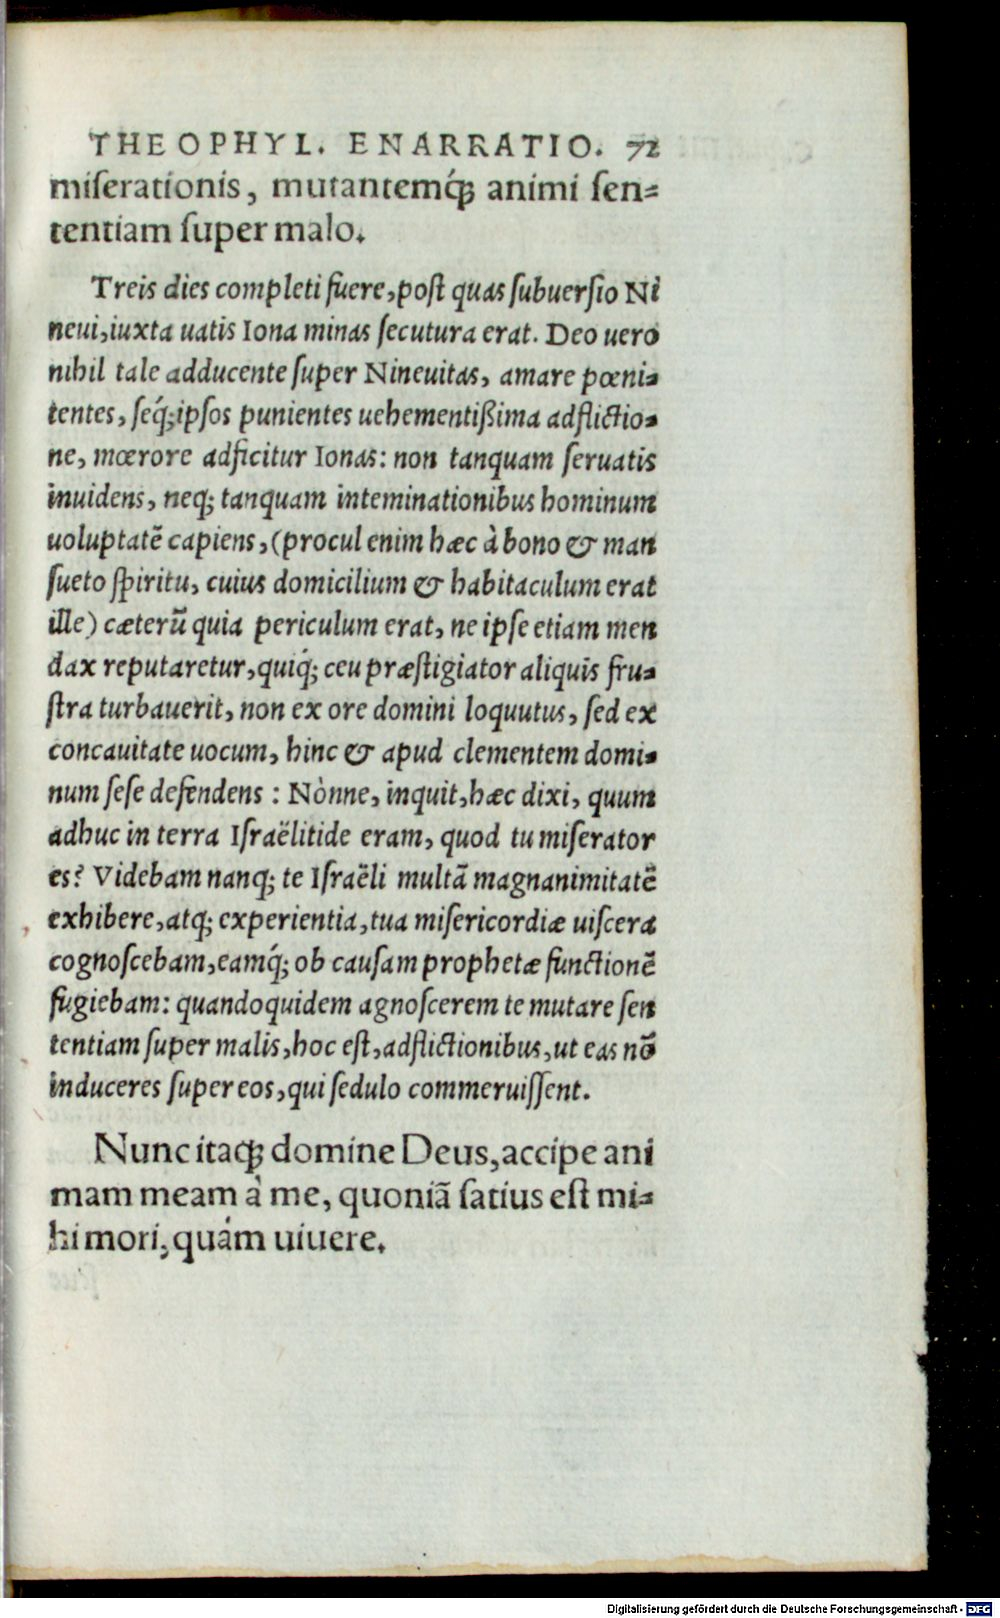 THEOPHYL. ENARRATIO. 72
miserationis, mutantemq́; animi sen=
tentiam super malo.
Treis dies completi fuere, post quas subuersio Ni
neui, iuxta uatis Iona minas secutura erat. Deo uero
nihil tale adducente super Nineuitas, amare pœni=
tentes, seq́; ipsos punientes uehementißima adflictio=
ne, mœrore adficitur Ionas: non tanquam seruatis
inuidens, neq; tanquam inteminationibus hominum
uoluptatē capiens, (procul enim hæc à bono & man
sueto spiritu, cuius domicilium & habitaculum erat
ille) cæterū quia periculum erat, ne ipse etiam men
dax reputaretur, quiq́; ceu præstigiator aliquis fru=
stra turbauerit, non ex ore domini loquutus, sed ex
concauitate uocum, hinc & apud clementem domi=
num sese defendens : Nònne, inquit, hæc dixi, quum
adhuc in terra Israëlitide eram, quod tu miserator
es? Videbam nanq; te Israëli multā magnanimitatē
exhibere, atq; experientia, tua misericordiæ uiscera
cognoscebam, eamq́; ob causam prophetæ functionē
fugiebam: quandoquidem agnoscerem te mutare sen
tentiam super malis, hoc est, adflictionibus, ut eas nō
induceres super eos, qui sedulo commeruissent.
Nunc itaq; domine Deus, accipe ani
mam meam à me, quoniā satius est mi=
hi mori, quám uiuere.
Digitalisierung gefördert durch die Deutsche Forschungsgemeinschaft - DFG